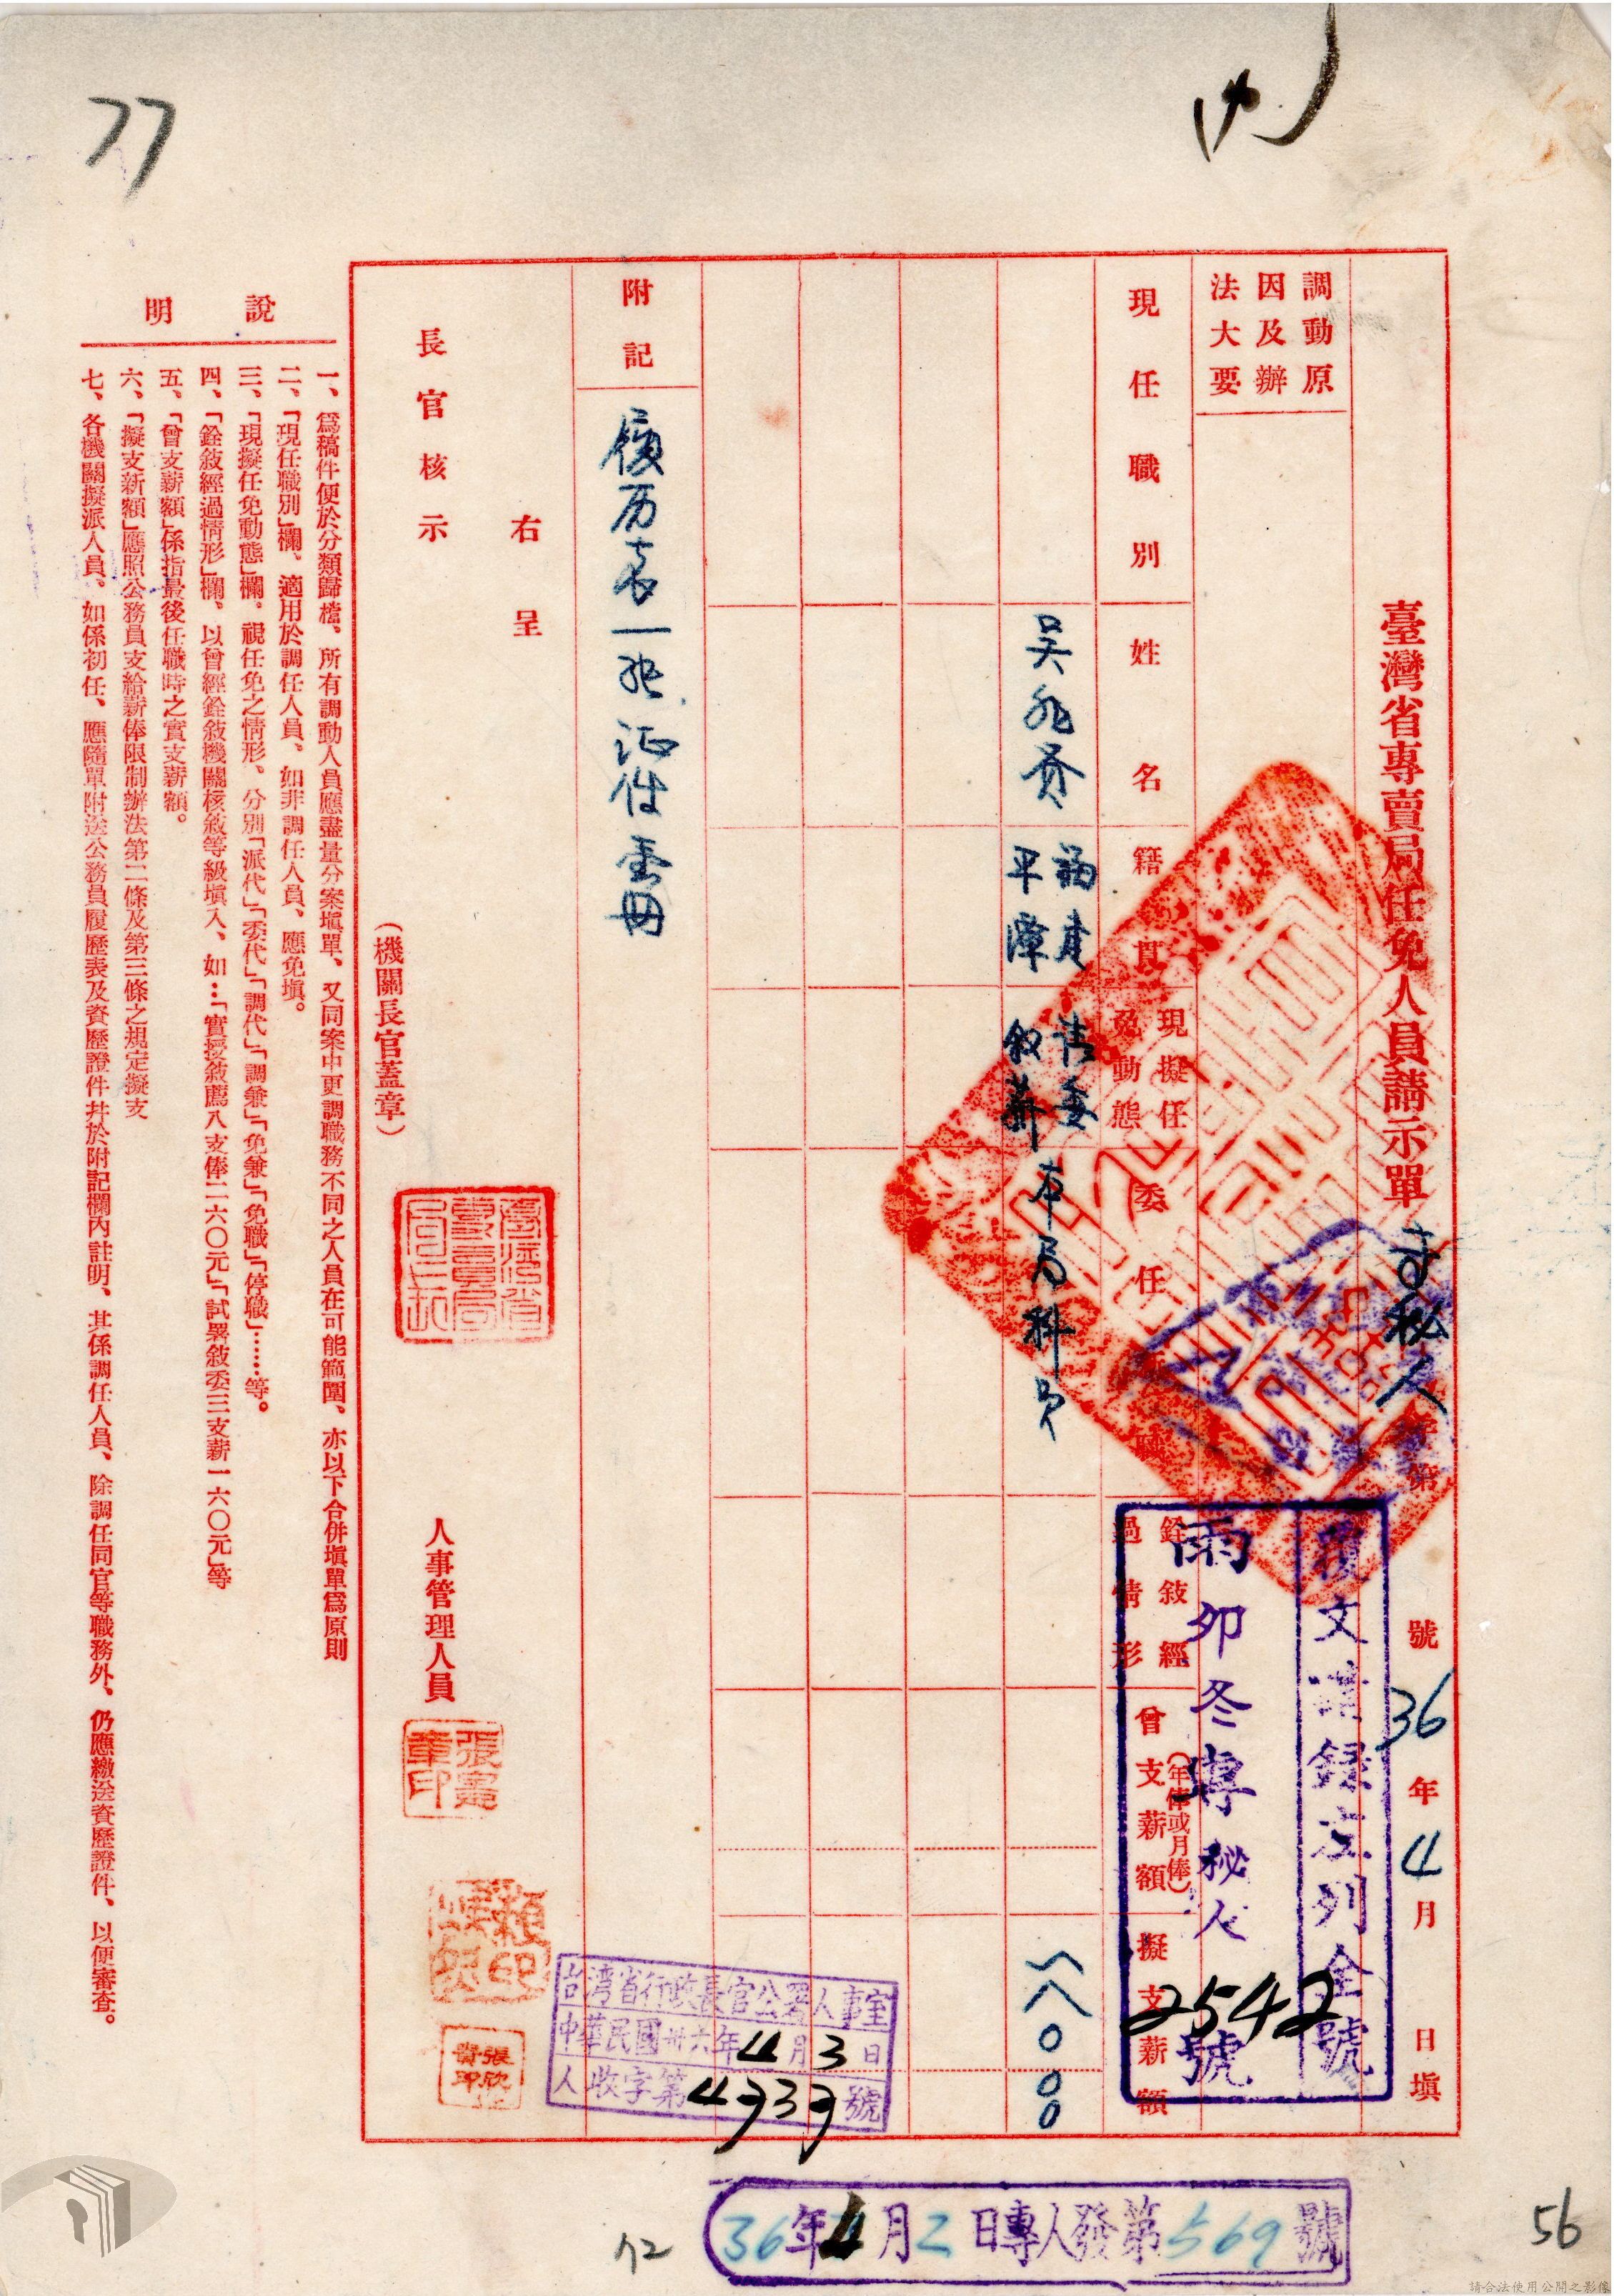 77
臺灣省專賣局任免人員請示單
秘人字第 號 36年4月 日填
覆文請錄左列全號
雨卯冬專秘人2542號
調動原因及辦法大要
現任職別
姓名
籍貫
現擬任免動態
委任
銓敘經過情形
曾支薪額(年俸或月俸)
擬支薪額
吳
福建平潭
請委敘薪
本局科員
一八〇00
附記
履历表一張證件壹冊
右呈
長官核示
(機關長官蓋章)
臺灣省專賣局局長
人事管理人員
張憲章印
台灣省行政長官公署人事室
中華民國卅六年4月3日
人收字第4737號
說明
一、爲稿件便於分類歸檔、所有調動人員應盡量分案塡單、又同案中更調職務不同之人員在可能範圍、亦以下合併塡單爲原則
二、「現任職別」欄、適用於調任人員、如非調任人員、應免塡。
三、「現擬任免動態」欄、視任免之情形、分別「派代」「委代」「調代」「調兼」「免兼」「免職」「停職」……等。
四、「銓敍經過情形」欄、以曾經銓敍機關核敍等級塡入、如：「實授敍薦八支俸二六〇元」「試署敍委三支薪一六〇元」等
五、「曾支薪額」係指最後任職時之實支薪額。
六、「擬支新額」應照公務員支給薪俸限制辦法第二條及第三條之規定擬支
七、各機關擬派人員、如係初任、應隨單附送公務員履歷表及資歷證件幷於附記欄內註明、其係調任人員、除調任同官等職務外、仍應繳送資歷證件、以便審查。
36年4月2日專人發第569號
72
56
請合法使用公開之影像